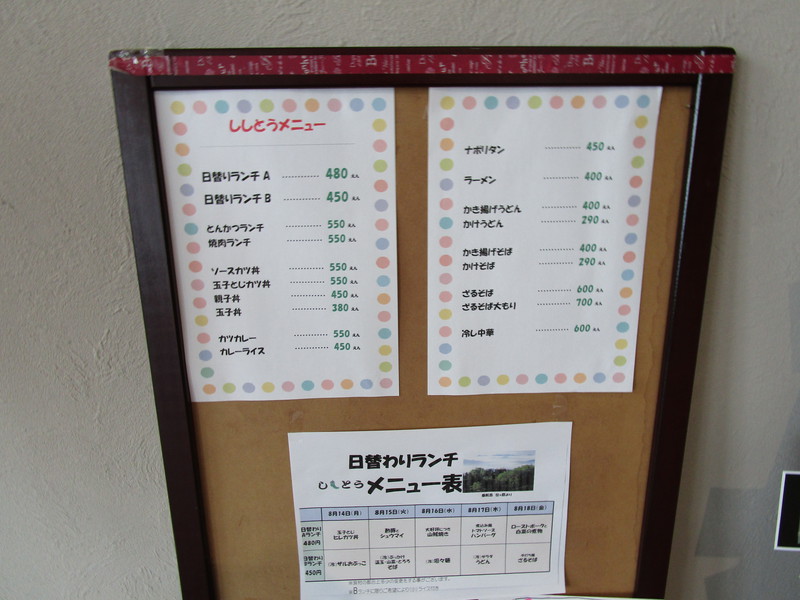 ししとうメニュー
日替りランチ A ………… 480 えん
日替りランチ B ………… 450 えん
とんかつランチ ………… 550 えん
焼肉ランチ ………… 550 えん
ソースカツ丼 ………… 550 えん
玉子とじカツ丼 ………… 550 えん
親子丼 ………… 450 えん
玉子丼 ………… 380 えん
カツカレー ………… 550 えん
カレーライス ………… 450 えん
ナポリタン ………… 450 えん
ラーメン ………… 400 えん
かき揚げうどん ………… 400 えん
かけうどん ………… 290 えん
かき揚げそば ………… 400 えん
かけそば ………… 290 えん
ざるそば ………… 600 えん
ざるそば大もり ………… 700 えん
冷し中華 ………… 600 えん
日替わりランチ
ししとう メニュー表
8月14日(月) 8月15日(火) 8月16日(水) 8月17日(木) 8月18日(金)
日替わり
Aランチ
480円
玉子とじ
ヒレカツ丼
シュウマイ
山賊焼き
ハンバーグ
ローストポークと
日替わり
Bランチ
450円
ザルおぶっこ
そば
うどん
ざるそば